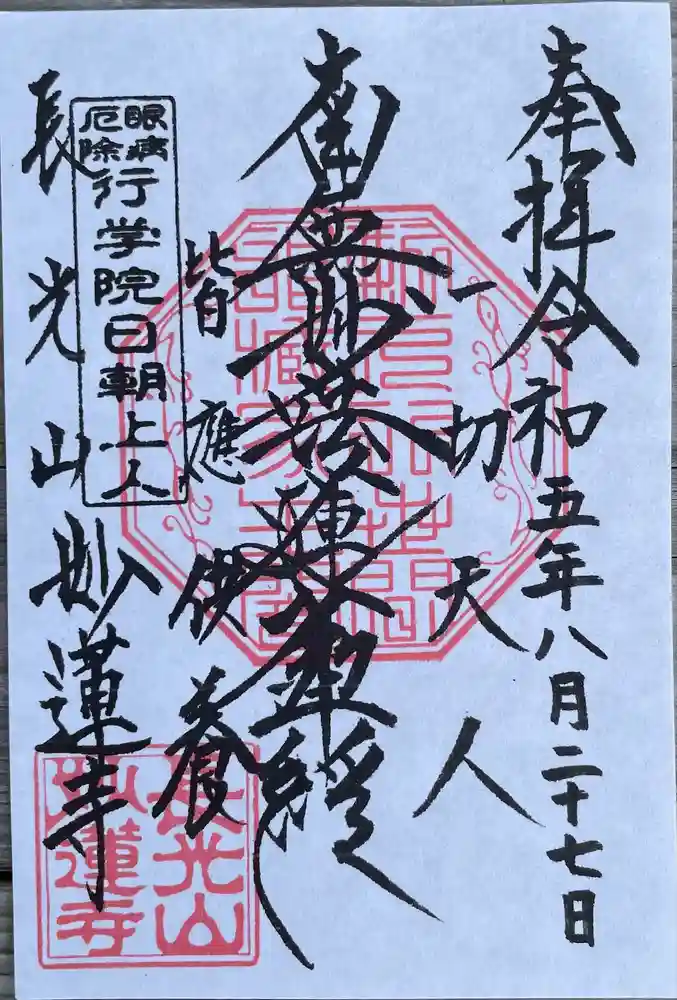 奉拝 令和五年八月二十七日
一切天人
南無妙法蓮華経
皆應供養
眼病
厄除
行学院日朝上人
長光山妙蓮寺
長光山
妙蓮寺